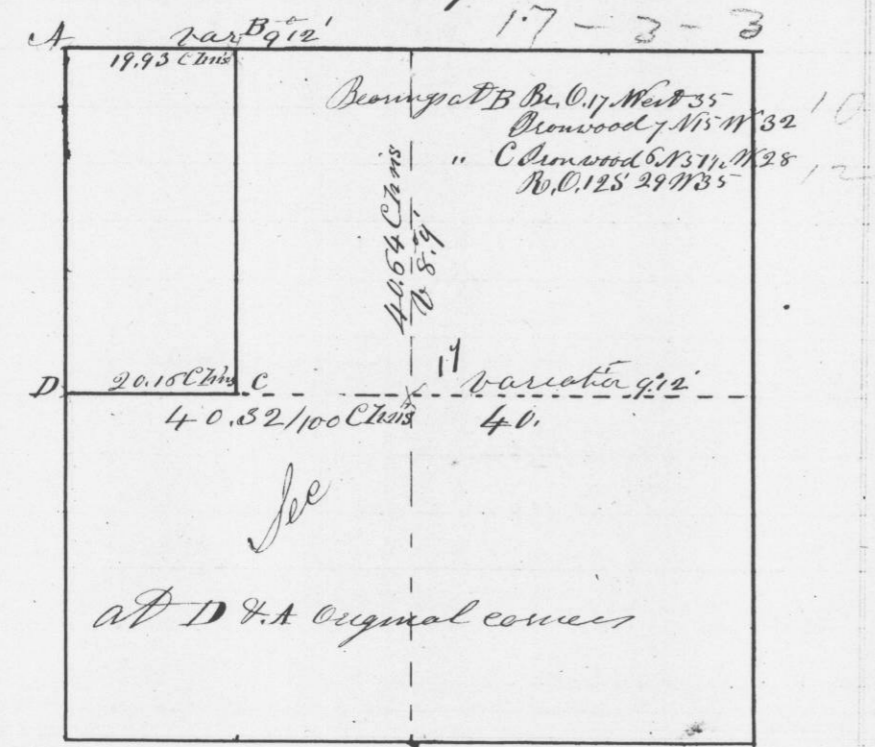 17 - 3 - 3
A var B 9°12'
19.93 Chns
Bearings at B Br, O. 17 West 35
Ironwood 7 N 15 W 32
" C Ironwood 6 W 28
R, O. 12 S 29 W 35
40.64 Chns
V 8.9'
17
D 20.16 Chns C
variation 9°12'
40.32/100 Chns 40.
Sec
at D & A Original corners